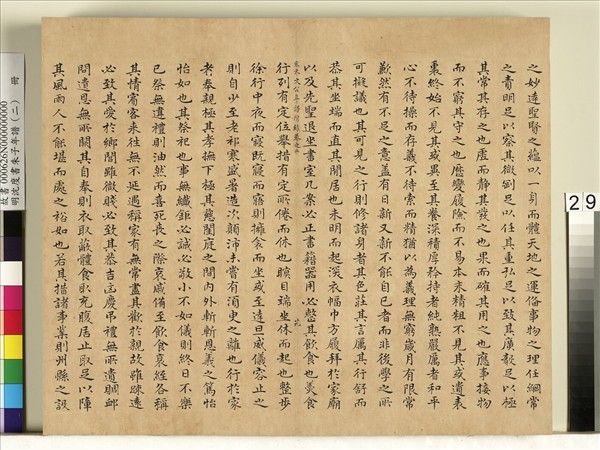 之妙達聖賢之蘊以一身而體天地之運備事物之理任綱常
之責明足以察其微剛足以任其重弘足以致其廣毅足以極
其常其存之也虛而靜其發之也果而確其用之也應事接物
而不窮其守之也歷變履險而不易本末精粗不見其或遺表
裏終始不見其或異至其養深積厚矜持者純熟嚴厲者和平
心不待操而存義不待索而精猶以為義理無窮歲月有限常
歉然有不足之意蓋有日新又新不能自已者而非後學之所
可擬議也其可見之行則修諸身者其色莊其言厲其行舒而
恭其坐端而直其閒居也未明而起深衣幅巾方履拜於家廟
以及先聖退坐書室几案必正書籍器用必整其飲食也羹食
行列有定位舉措有定所倦而休也瞑目端坐休而起也整步
徐行中夜而寢既寢而寤則擁衾而坐或至達旦威儀容止之
則自少至老祁寒盛暑造次顛沛未嘗有須臾之離也行於家
者奉親極其孝撫下極其慈閨庭之間內外斬斬恩義之篤怡
怡如也其祭祀也事無纖鉅必誠必敬小不如儀則終日不樂
已祭無違禮則油然而喜死喪之際哀戚備至飲食衰絰各稱
其情賓客來往無不延遇稱家有無常盡其歡於親故雖疎遠
必致其愛於鄉閭雖微賤必致其恭吉凶慶弔禮無所遺賙卹
問遺恩無所闕其自奉則衣取蔽體食取充腹居止取足以障
其風雨人不能堪而處之裕如也若其措諸事業則州縣之設
故書 000626N000000000
明沈度書朱子年譜（一） 冊
29